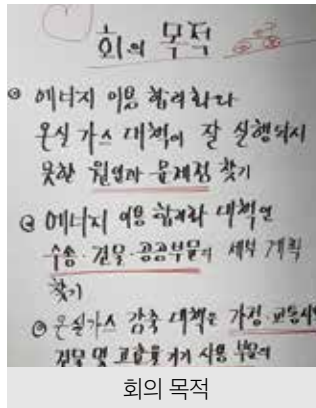 회의 목적
① 에너지 이용 합리화와
온실가스 대책이 잘 실행되지
못한 원인과 문제점 찾기
② 에너지 이용 합리화 대책인
수송·건물·공공부문의 세부 계획
찾기
③ 온실가스 감축 대책은 가정·교통시
건물 및 고효율 기기 사용 부문의
회의 목적